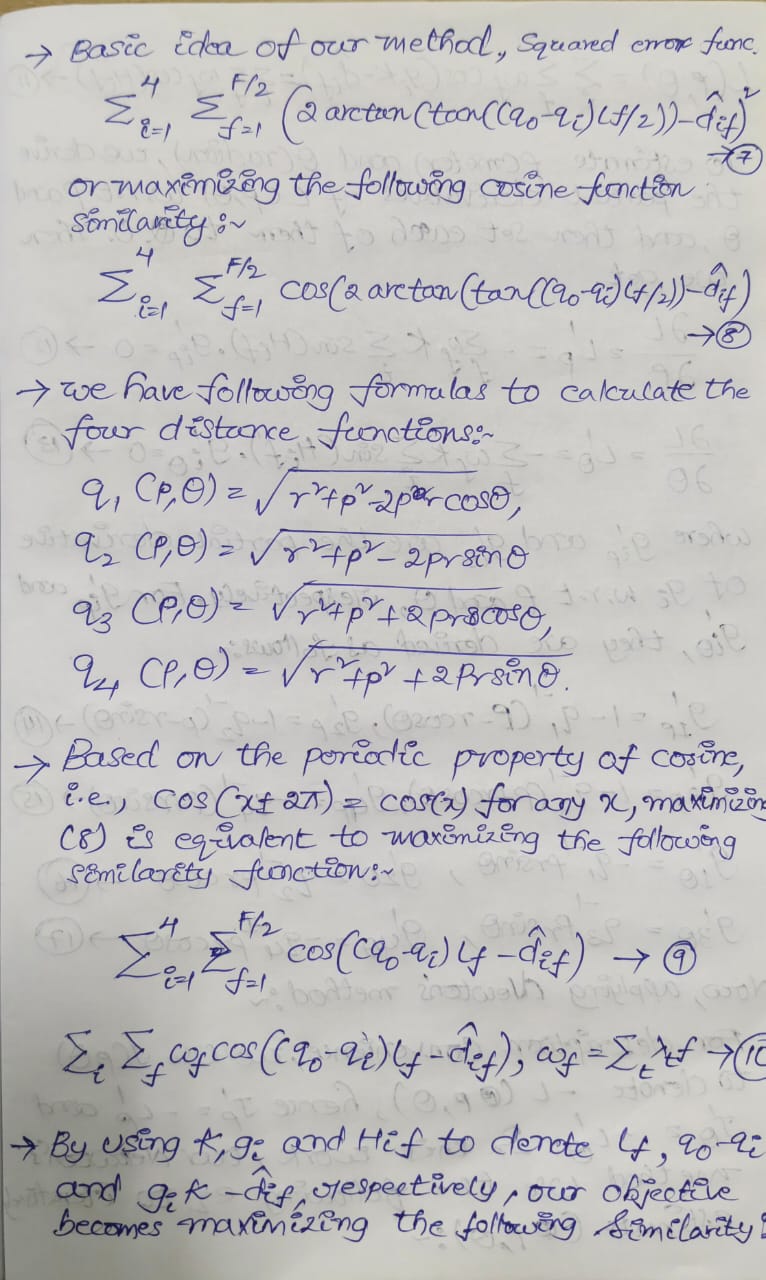 → Basic idea of our method, Squared error func.
∑⁴ᵢ₌₁ ∑^{F/2}_{f=1} (2 arctan(tan((q₀-qᵢ)Lf/2))-d̂ᵢf)² →⑦
or maximizing the following cosine function
similarity :~
∑⁴ᵢ₌₁ ∑^{F/2}_{f=1} cos(2 arctan(tan((q₀-qᵢ)Lf/2))-d̂ᵢf) →⑧
→ we have following formulas to calculate the
four distance functions:~
q₁ (ρ,θ) = √(r²+ρ²-2ρr cosθ),
q₂ (ρ,θ) = √(r²+ρ²-2ρr sinθ)
q₃ (ρ,θ) = √(r²+ρ²+2ρr cosθ),
q₄ (ρ,θ) = √(r²+ρ²+2ρr sinθ).
→ Based on the periodic property of cosine,
i.e., cos(x±2π) = cos(x) for any x, maximizing
(8) is equivalent to maximizing the following
similarity function:~
∑⁴ᵢ₌₁ ∑^{F/2}_{f=1} cos((q₀-qᵢ)Lf-d̂ᵢf) → ⑨
∑ᵢ ∑f ωf cos((q₀-qᵢ)Lf-d̂ᵢf), ωf = ∑ₜ λₜf →⑩
→ By using K, gᵢ and Hif to denote Lf, q₀-qᵢ
and gᵢK-d̂ᵢf, respectively, our objective
becomes maximizing the following similarity: